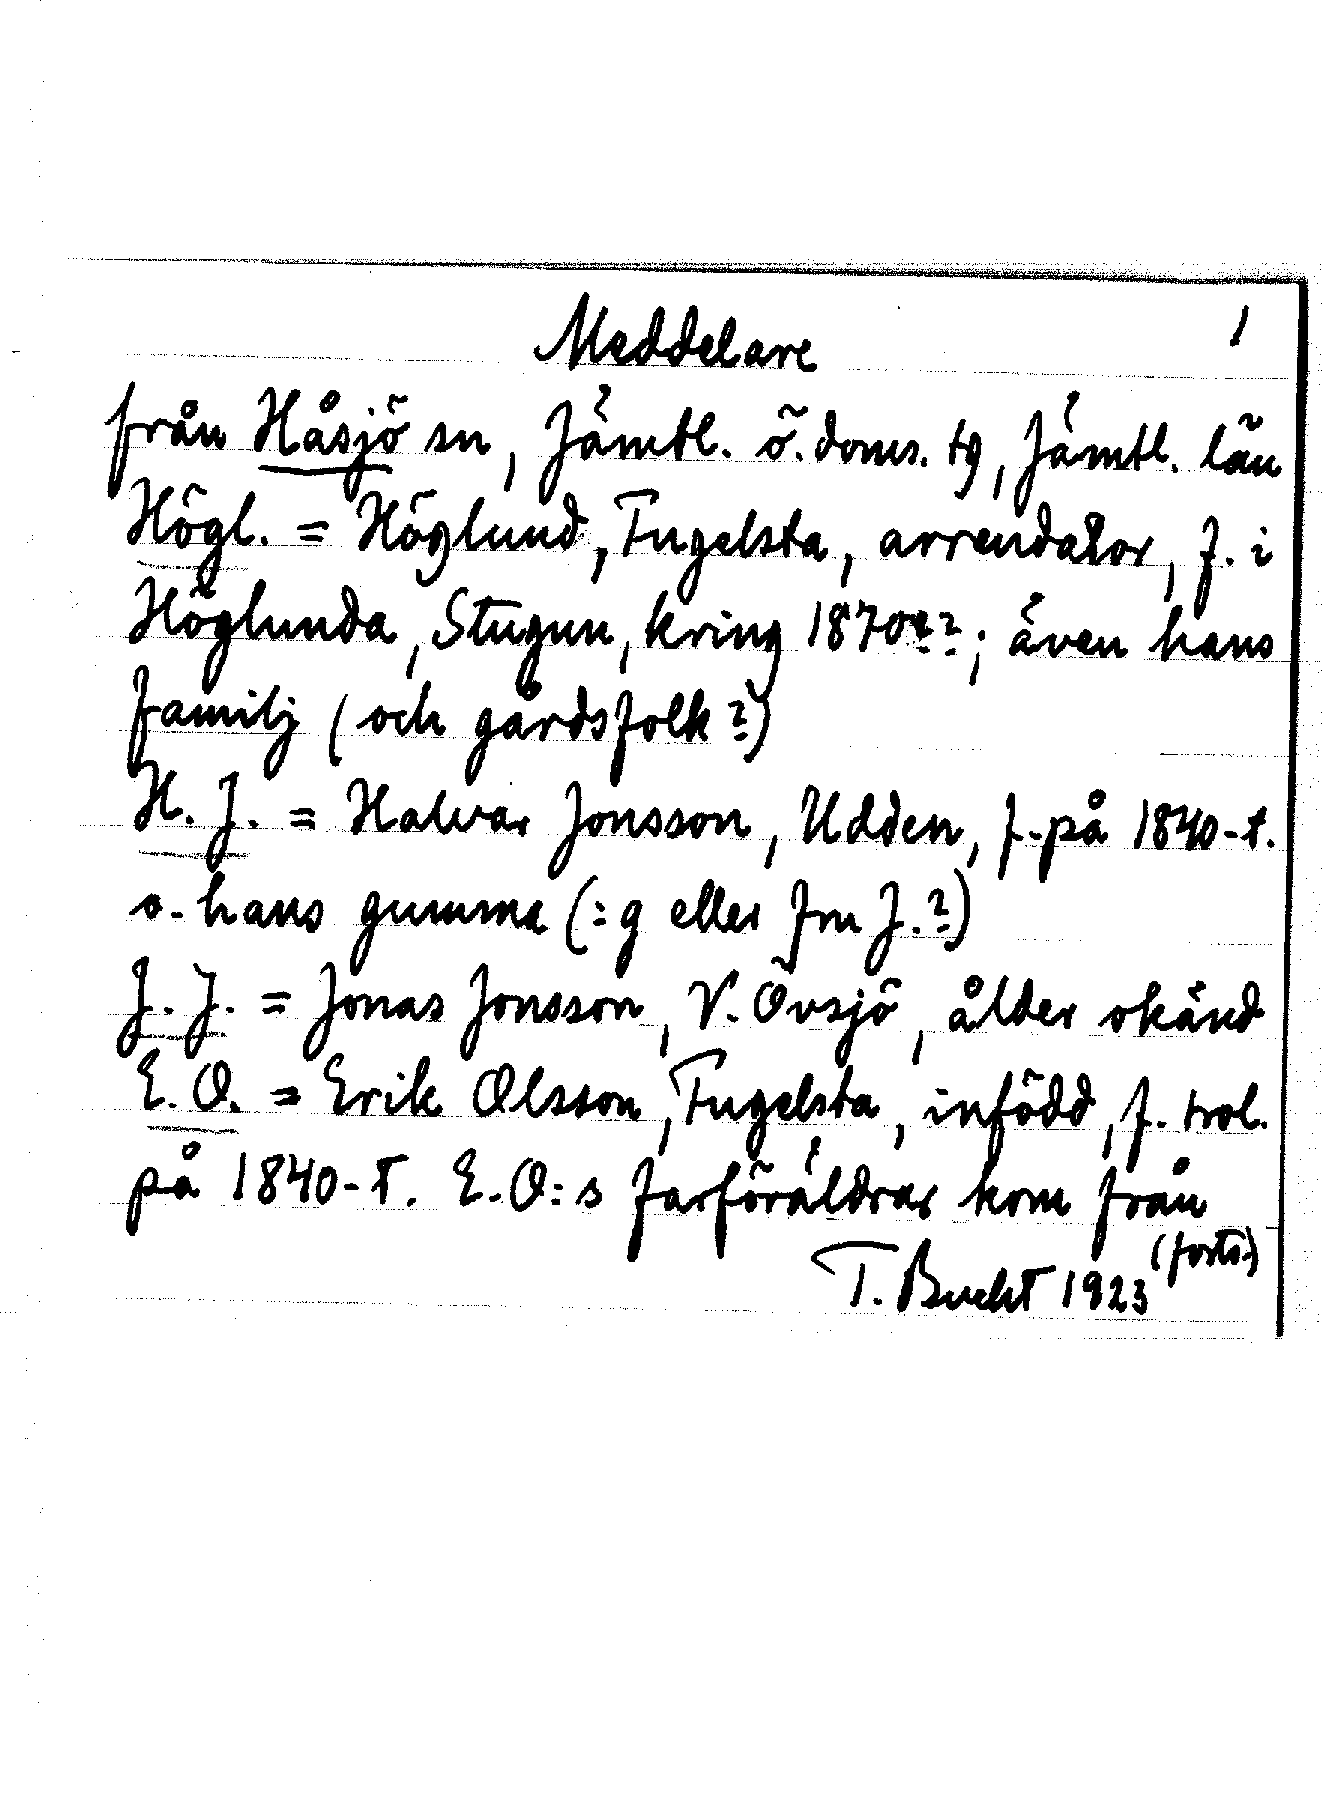 Meddelare 1
från Håsjö sn, Jämtl. ö. doms. tg, Jämtl. län
Högl. = Höglund, Fugelsta, arrendator, f. i
Höglunda, Stugun, kring 1870??; även hans
familj (och gårdsfolk?)
H. J. = Halvar Jonsson, Udden, f. på 1840-t.
o. hans gumma (: g eller fru J.?)
J. J. = Jonas Jonsson, V. Övsjö, ålder okänd
E. O. = Erik Olsson, Fugelsta, infödd, f. trol.
på 1840-t. E. O:s farföräldrar kom från
(forts.)
T. Bucht 1923